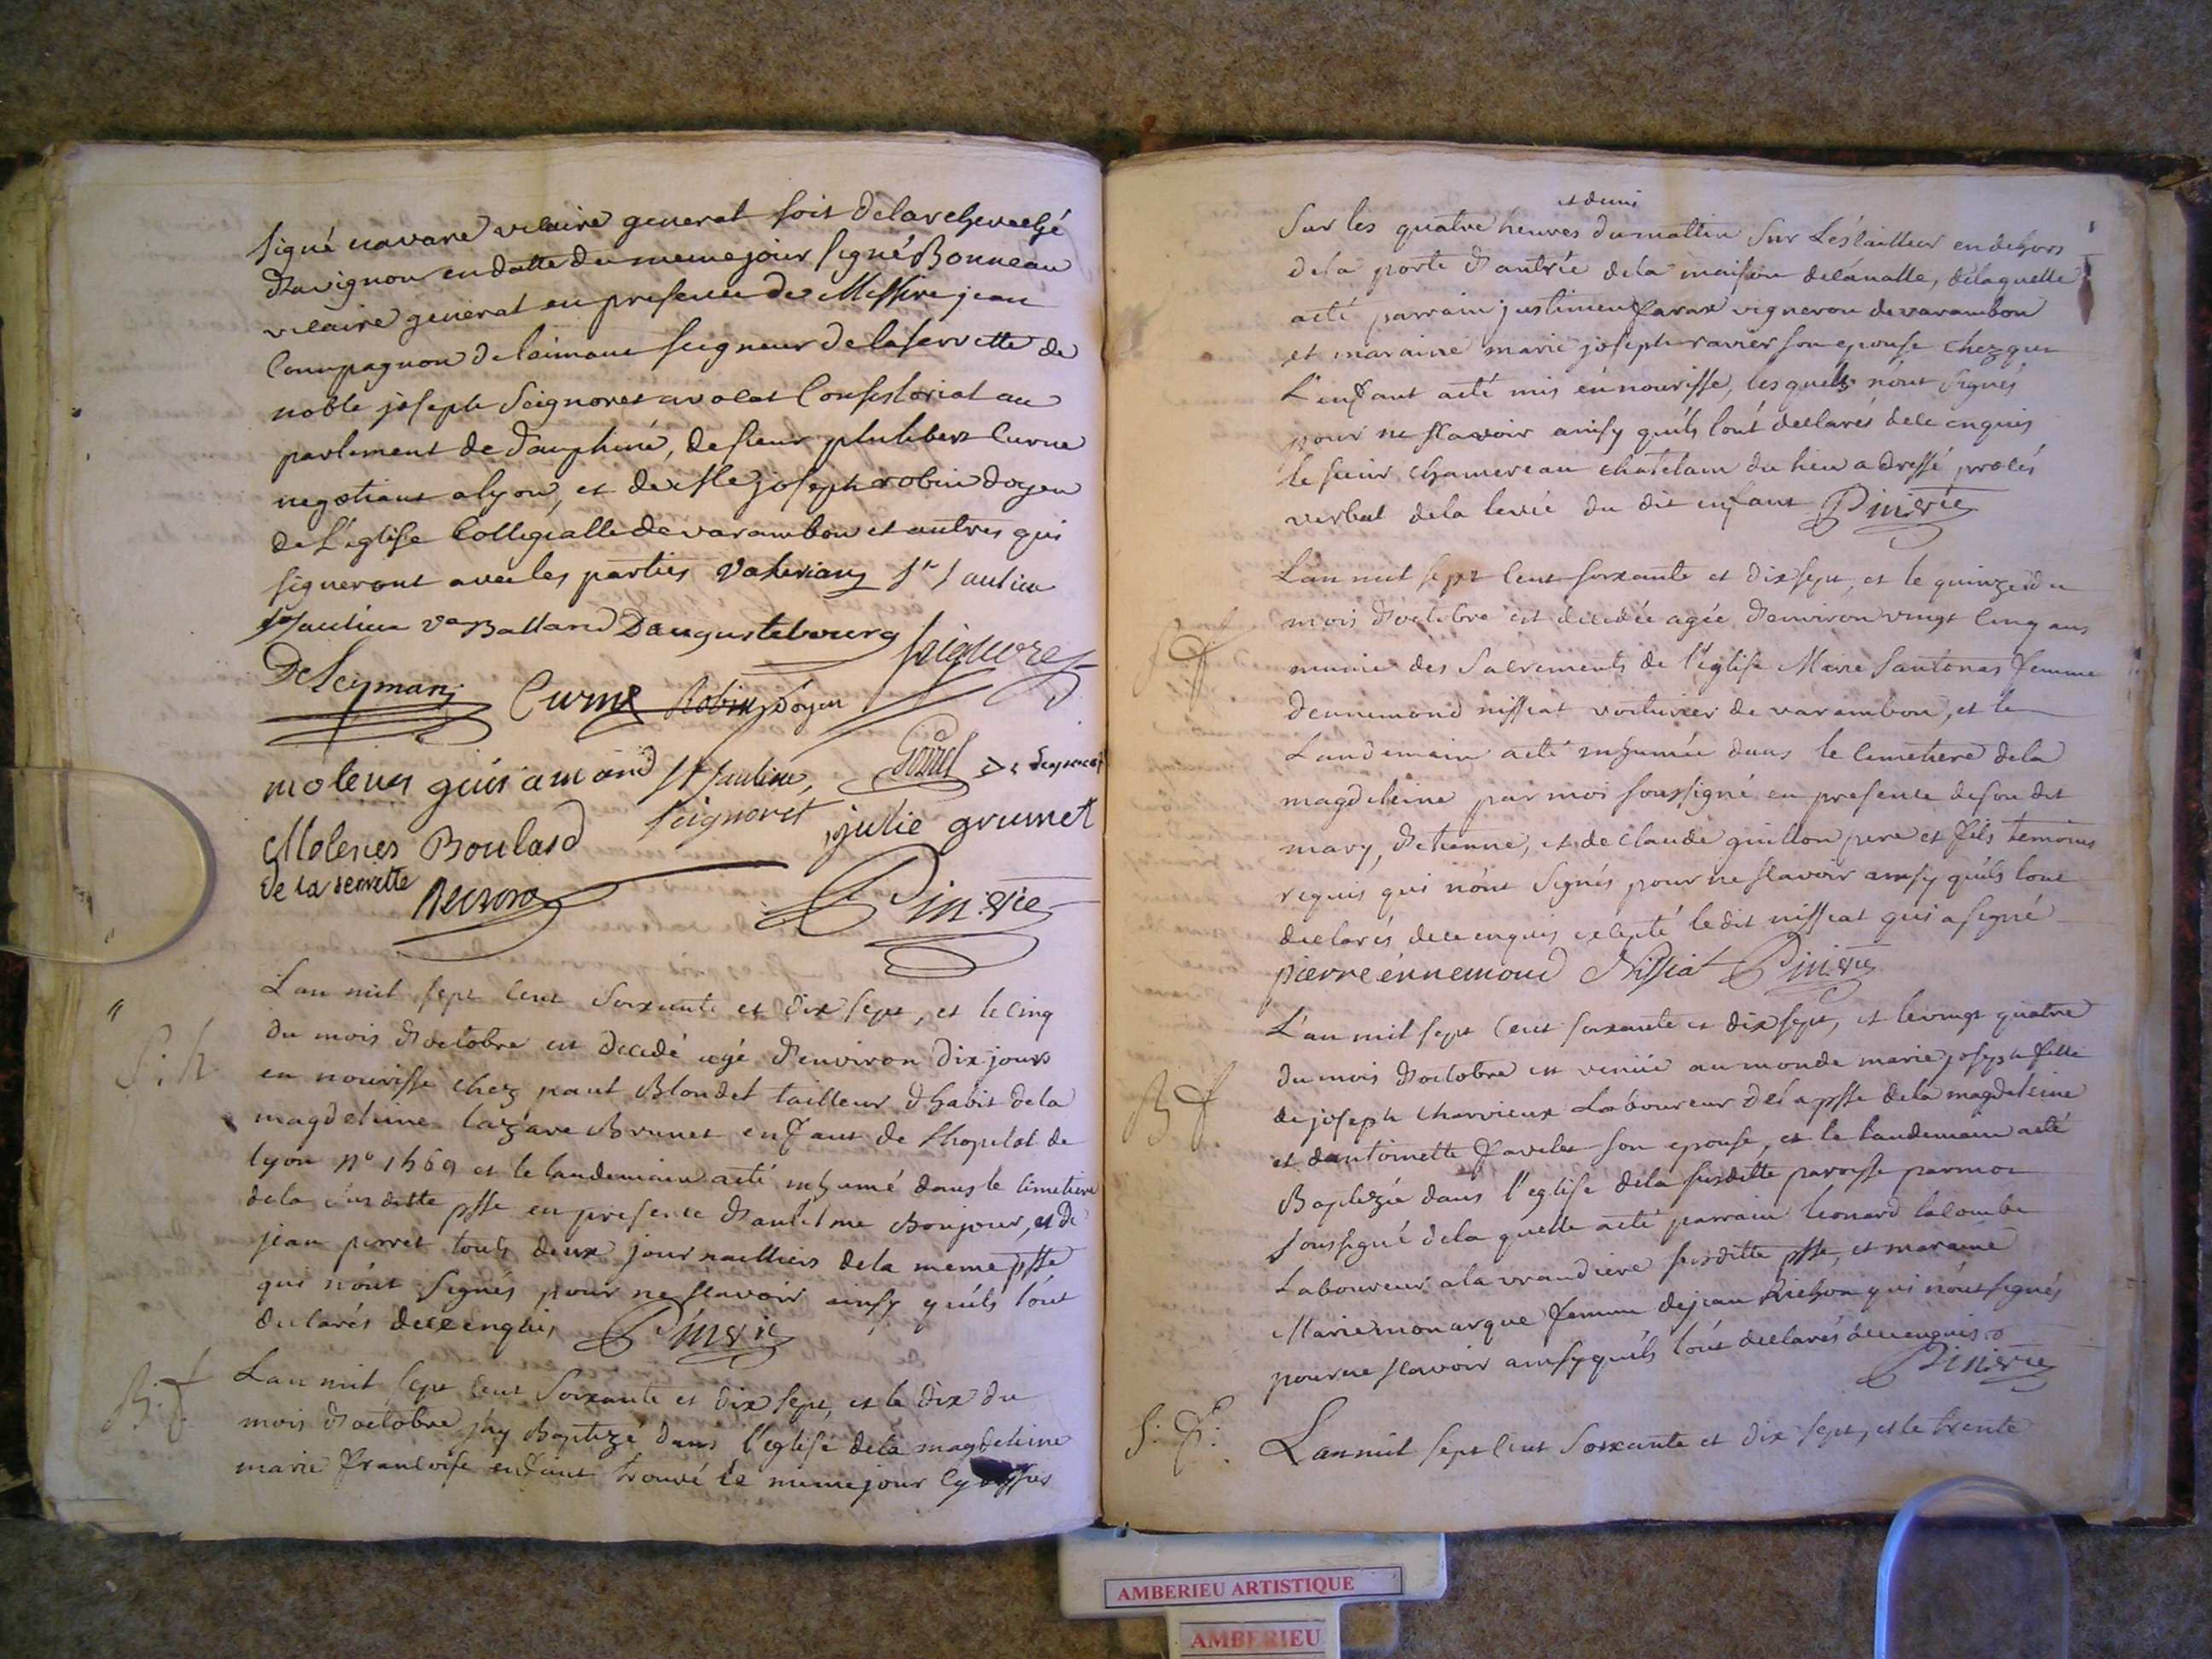 signé navarre vicaire general soit de larcheveché
d'avignon en datte du meme jour signé Bonneau
vicaire general en presence de Messire jean
Compagnon de laimant seigneur de la servette de
noble joseph Seignoret avocat Consistorial au
parlement de dauphiné, de sieur philibert Curne
negotiant a lyon, et de mre joseph robin doyen
de L'église Collegialle de varambon et autres qui
signeront avec les parties Valerians St Saulieu
St Saulieu Ballard Daugustebourg
Seignoret
De Leymans Curne Robin Doyen
molenes guis amand St Saulieu, Goiret
Molenes Boulard Seignoret julie grumet
de la servette
Pin vic
L'an mil sept cent soixante et dix sept, et le cinq
S: h
du mois d'octobre est decedé agé d'environ dix jours
en nourisse chez paul Blondet tailleur d'habit de la
magdeleine lazare Brunet enfant de l'hopital de
lyon no 1569 et le landemain a eté inhumé dans le cimetiere
de la susditte psse en presence d'antelme Bonjour, et de
jean perret touts deux journalliers de la meme psse
qui n'ont signés pour ne scavoir ainsy qu'ils l'ont
declarés de ce enquis Pin vic
B: f.
L'an mil sept cent soixante et dix sept, et le dix du
mois d'octobre j'ay Baptizé dans l'eglise de la magdeleine
marie francoise enfant trouvé le meme jour
et demi
sur les quatre heures du mattin sur L'éscaillier en dehors
de la porte d'entrée de la maison de la natte, de laquelle
a eté parrain justinien favax vigneron de varambon
et maraine marie joseph ravier son epouse chez qui
L'enfant a eté mis en nourisse, les quels n'ont signés
pour ne scavoir ainsy qu'ils l'ont declarés de ce enquis
le sieur chamereau chatelain du lieu a dressé procés
verbal de la levée du dit enfant Pin vic
L'an mil sept cent soixante et dix sept, et le quinze du
S f
mois d'octobre est decedée agée d'environ vingt cinq ans
munie des Sacrements de l'église Marie Santonas femme
d'ennemond nissiat voiturier de varambon, et le
Landemain a eté inhumée dans le cimetiere de la
magdeleine par moi soussigné en presence de son dit
mary, d'etienne, et de claude guillon pere et fils temoins
requis qui n'ont signés pour ne scavoir ainsy qu'ils l'ont
declarés de ce enquis excepté le dit nissiat qui a signé
pierre énnemond Nissiat Pin vic
L'an mil sept cent soixante et dix sept, et le vingt quatre
B f
du mois d'octobre est venüe au monde marie joseph fille
de joseph charvieux Laboureur de la psse de la magdeleine
et d'antoinette favelet son epouse, et le landemain a eté
Baptizée dans l'eglise de la susditte paroisse par moi
soussigné de la quelle a eté parrain leonard lacombe
Laboureur a la vrandiere susditte psse, et maraine
Marie monarque femme de jean Richon qui n'ont signés
pour ne scavoir ainsy qu'ils l'ont declarés de ce enquis
Pin vic
S: F:
L'an mil sept cent soixante et dix sept, et le trente
AMBERIEU ARTISTIQUE
AMBERIEU